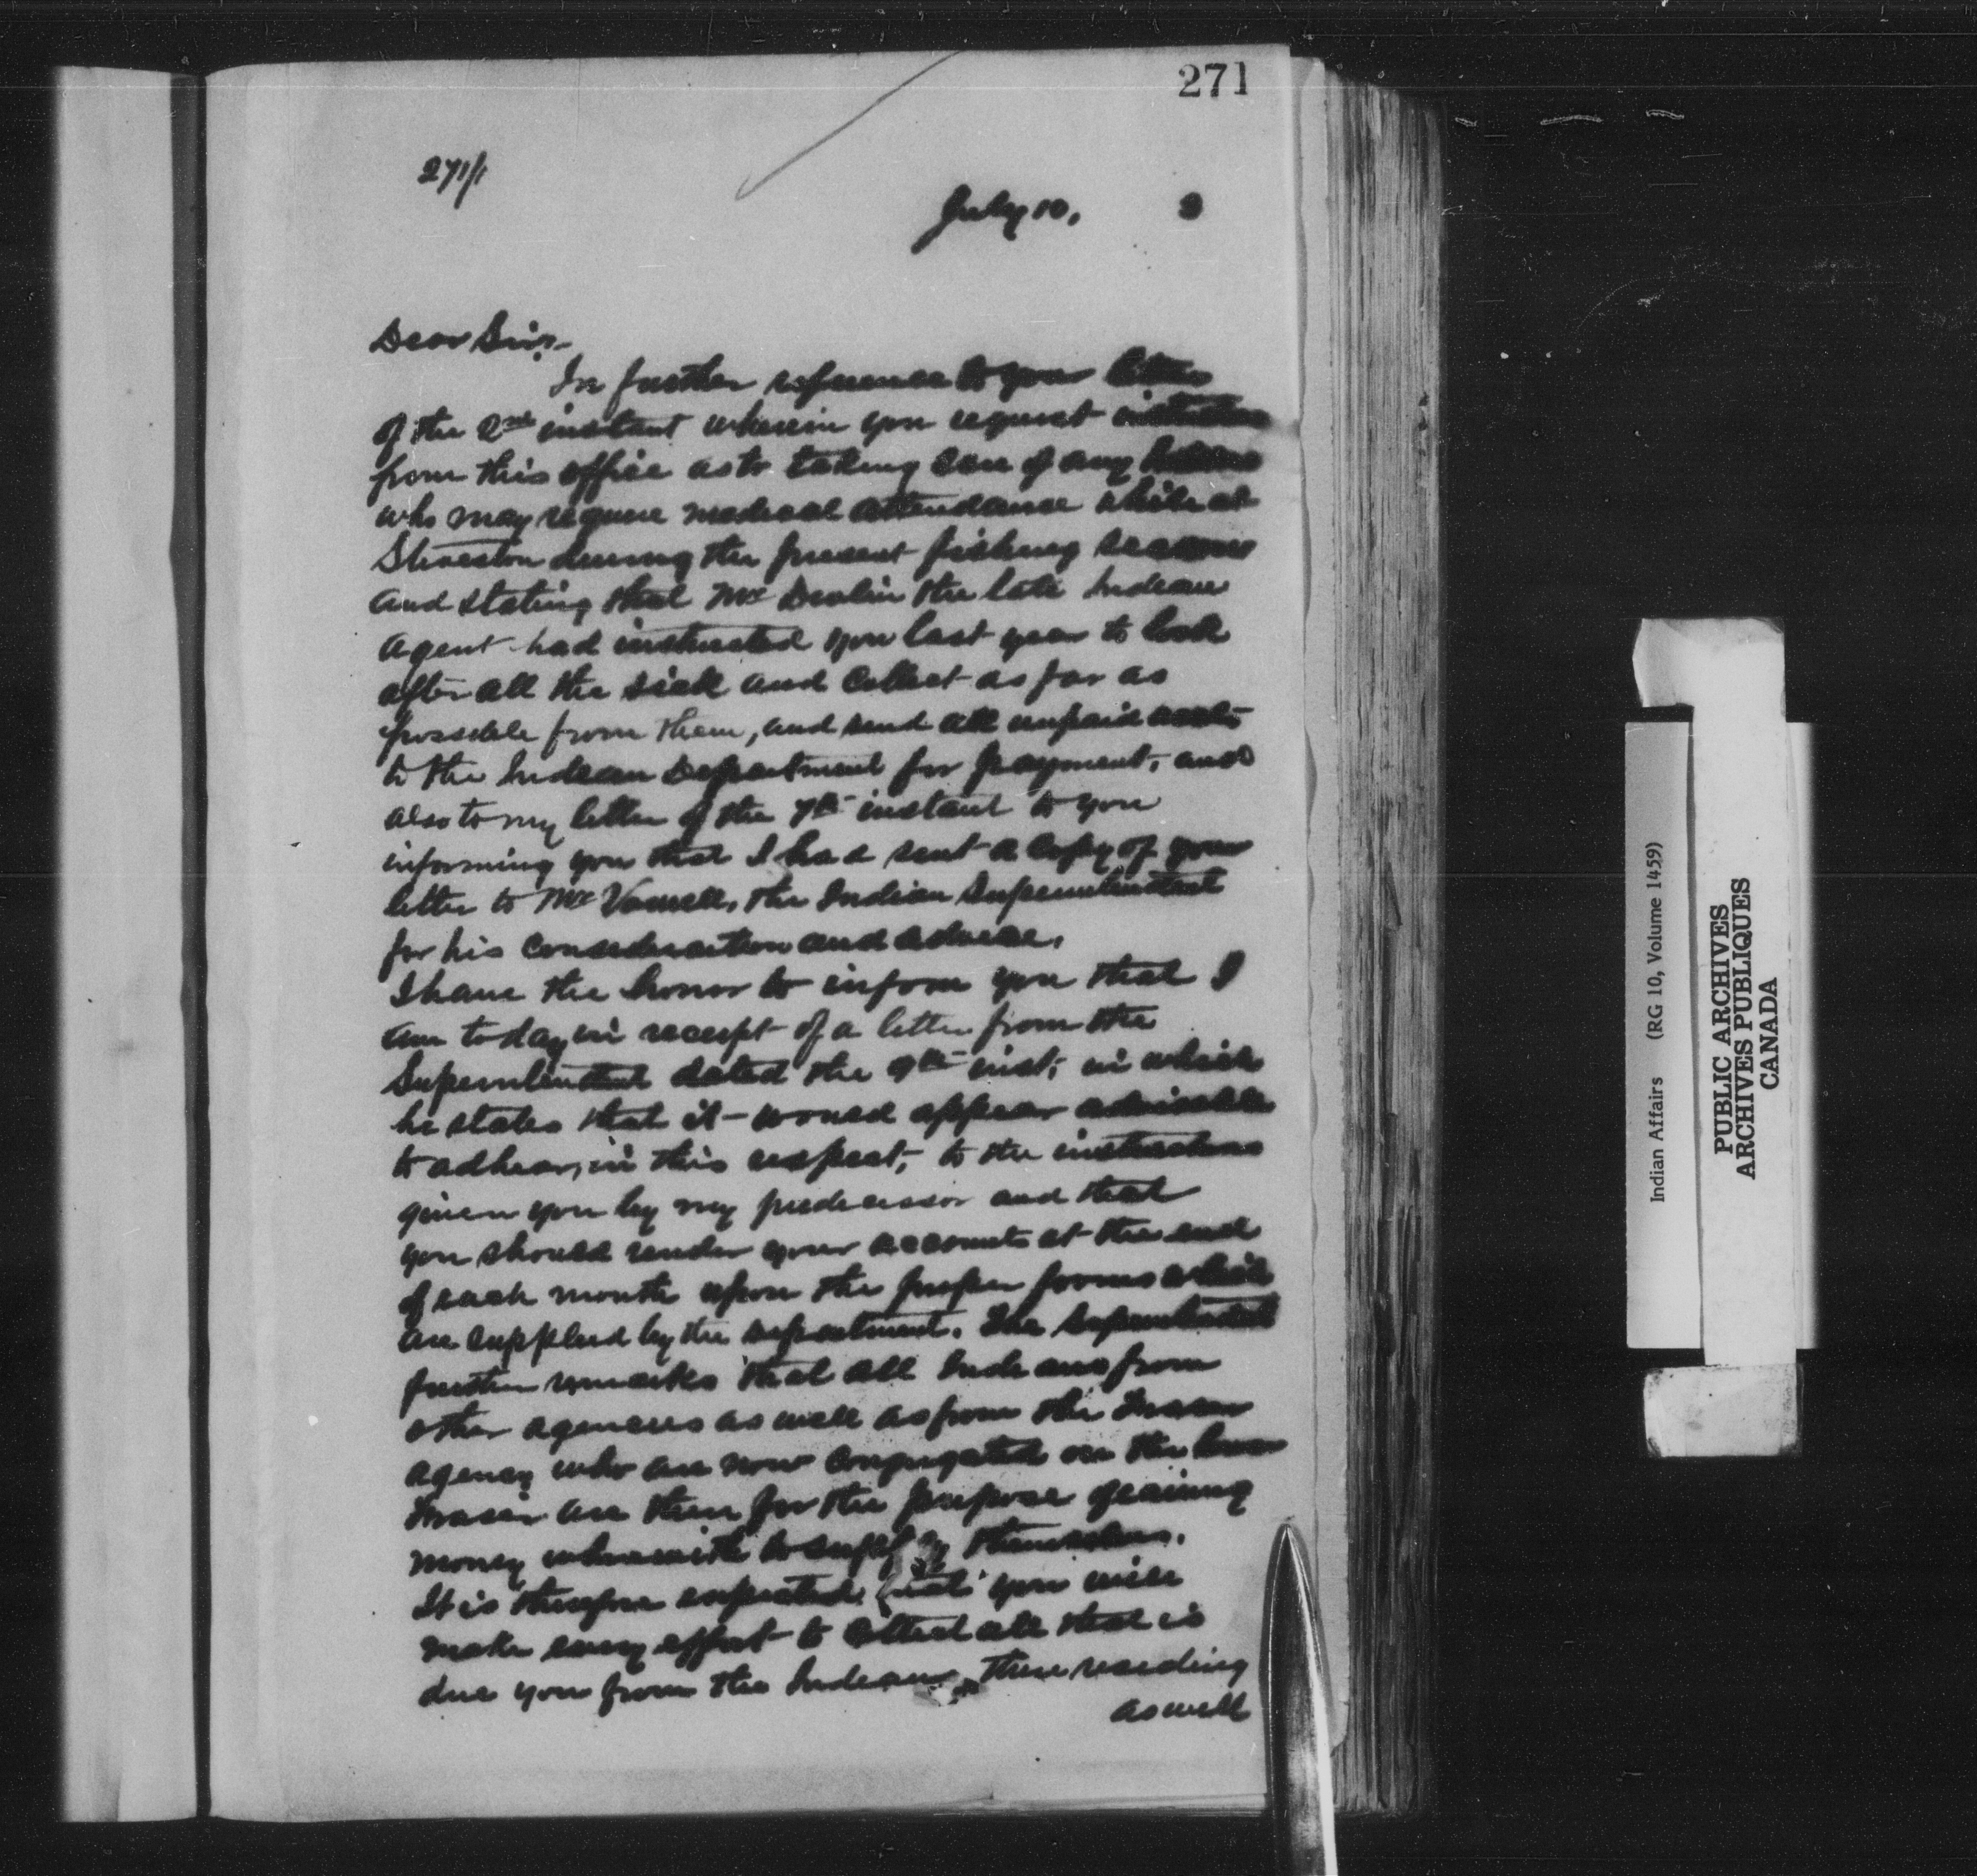 271
271/1
July 10, 3
Dear Sir:-
In further reference to your letter
of the 2nd instant wherein you request instructions
from this office as to taking care of any Indians
who may require medical attendance while at
Steveston during the present fishing season
and stating that Mr Devlin the late Indian
Agent had instructed you last year to look
after all the sick and collect as far as
possible from them, and send all unpaid accts
to the Indian Department for payment, and
also to my letter of the 7th instant to you
informing you that I had sent a copy of your
letter to Mr Vowell, the Indian Superintendent
for his consideration and advice.
I have the honor to inform you that I
am today in receipt of a letter from the
Superintendent dated the 9th inst; in which
he states that it would appear advisable
to adhear, in this respect, to the instructions
given you by my predecessor and that
you should render your accounts at the end
of each month upon the proper forms which
are supplied by the department. The Superintendent
further remarks that all Indians from
other agencies as well as from the Fraser
agency who are now congregated on the lower
Fraser are there for the purpose of earning
money wherewith to supply themselves.
It is therefore expected that you will
make every effort to collect all that is
due you from the Indians there residing
as well
Indian Affairs (RG 10, Volume 1459)
PUBLIC ARCHIVES
ARCHIVES PUBLIQUES
CANADA